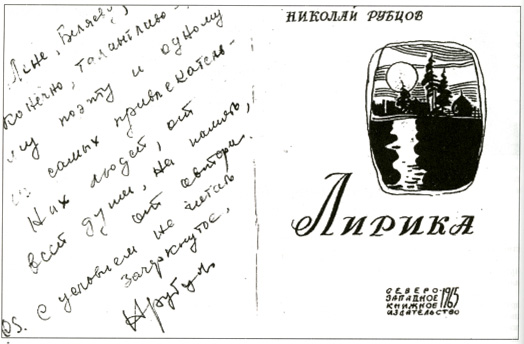 Лине Беляевой,
конечно, талантливо-
му поэту и одному
из самых привлекатель-
ных людей, от
всей души, на память,
от автора.
PS. С условием не читать
зачёркнутое.
Н Рубцов
НИКОЛАЙ РУБЦОВ
Лирика
СЕВЕРО-
ЗАПАДНОЕ
КНИЖНОЕ
ИЗДАТЕЛЬСТВО
1965